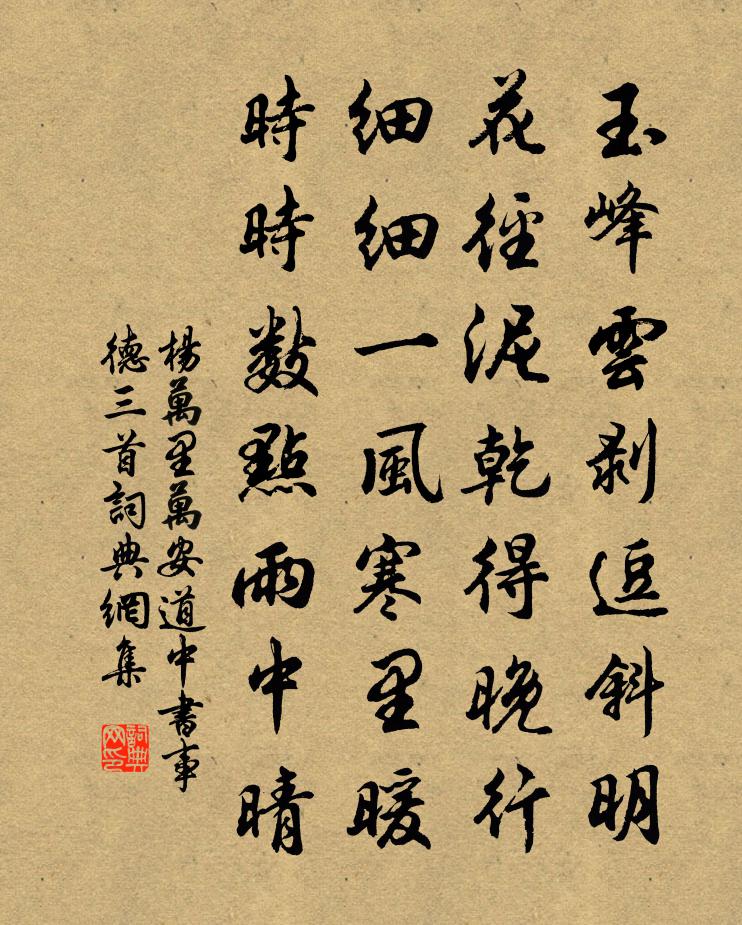 玉峰雲剥逗斜明
花徑泥乾得晚行
細細一風寒里暖
時時數點雨中晴
楊萬里萬安道中書事
德三首詞典網集
詞典网印